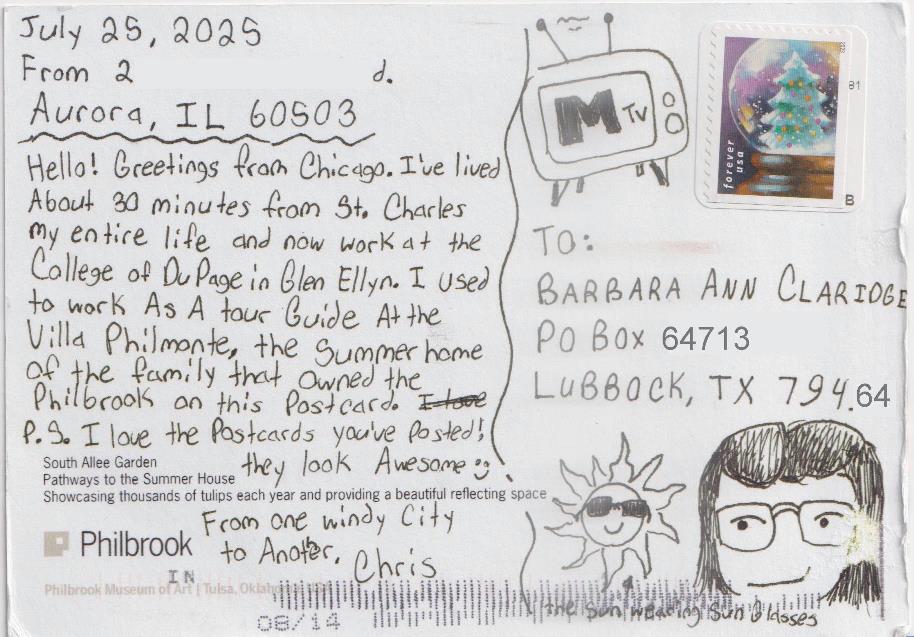 July 25, 2025
From 2 d.
Aurora, IL 60503
Hello! Greetings from Chicago. I've lived
About 30 minutes from St. Charles
my entire life and now work at the
College of DuPage in Glen Ellyn. I used
to work As A tour Guide At the
Villa Philmonte, the Summer home
of the family that owned the
Philbrook on this Postcard. I love
P.S. I love the Postcards you've Posted!
they look Awesome
South Allee Garden
Pathways to the Summer House
Showcasing thousands of tulips each year and providing a beautiful reflecting space
From one windy City
to Another,
Chris
Philbrook
Philbrook Museum of Art | Tulsa, Oklahoma, USA
IN
08/14
M TV
forever
usa
B1
B
TO:
BARBARA ANN CLARIDGE
PO BOX 64713
LUBBOCK, TX 794.64
the sun wearing Sun Glasses